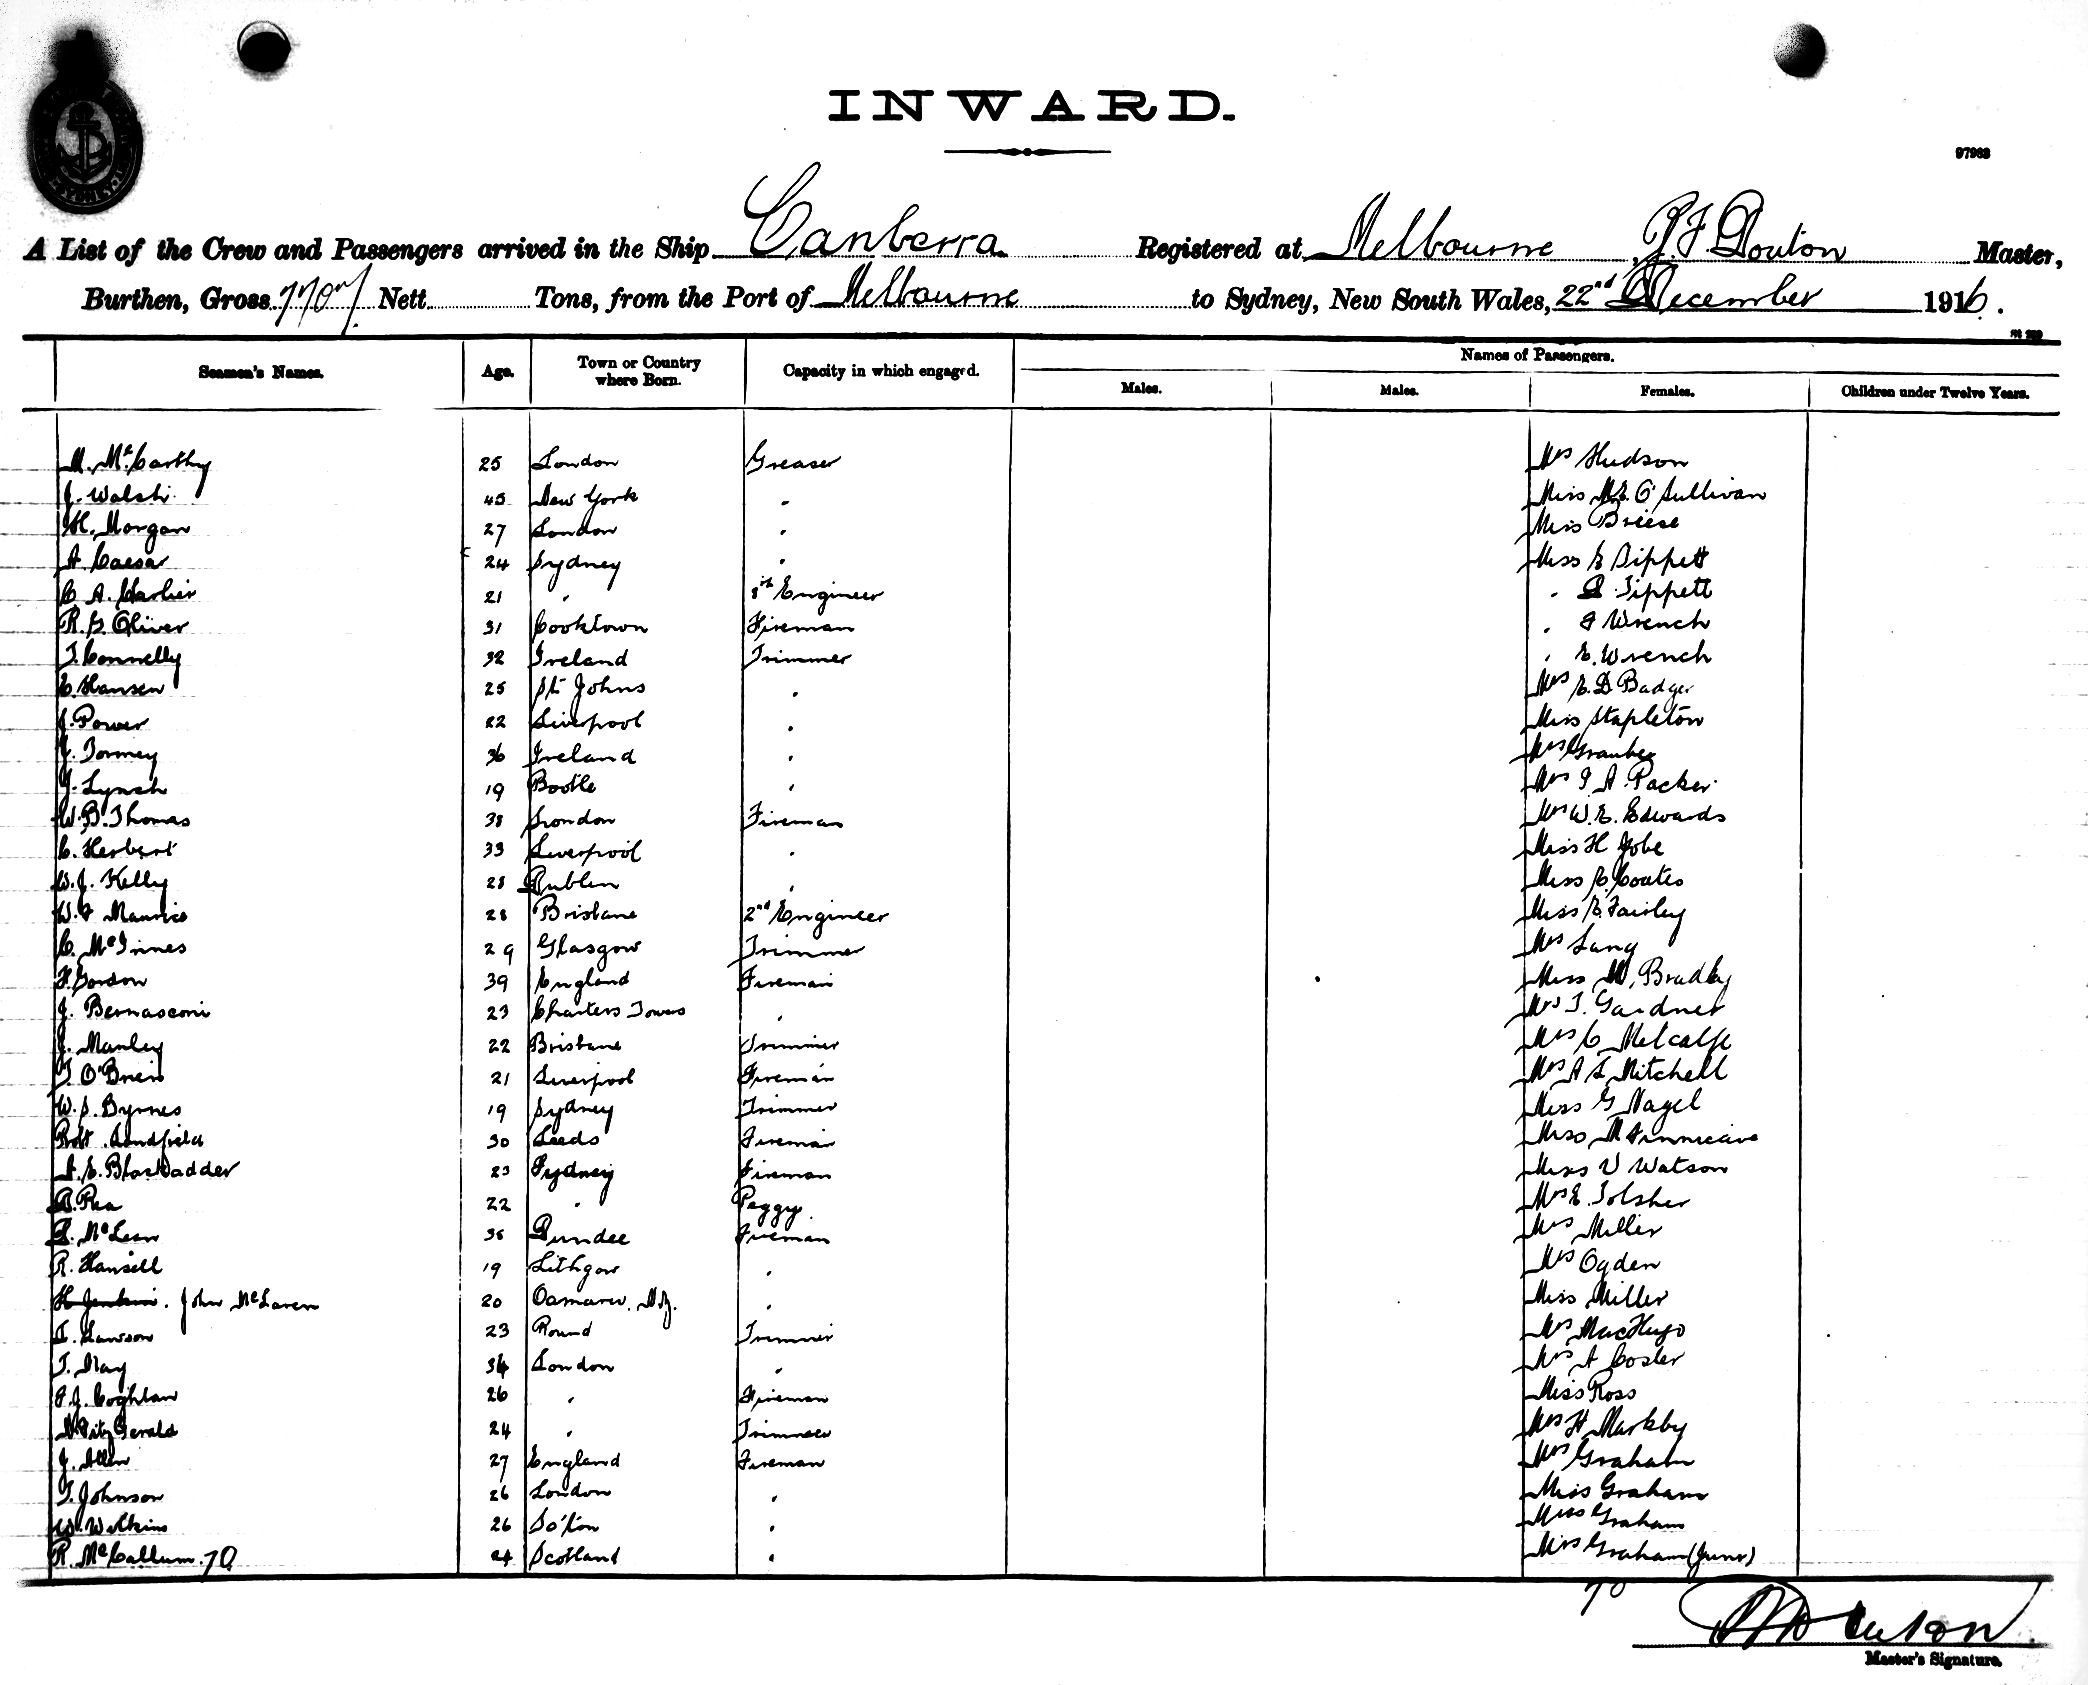 INWARD.
97983
A List of the Crew and Passengers arrived in the Ship Canberra Registered at Melbourne, Master,
Burthen, Gross 7707 Nett Tons, from the Port of Melbourne to Sydney, New South Wales, 22nd December 1916.
Names of Passengers.
Seamen's Names. Age. Town or Country where Born. Capacity in which engaged. Males. Males. Females. Children under Twelve Years.
M. McCarthy 25 London Greaser Mrs Hudson
J. Walsh 45 New York " Miss O'Sullivan
H. Morgan 27 London " Miss Breese
A. Caesar 24 Sydney " Miss E Tippett
C. A. 21 " 8th Engineer " Tippett
R. G. Oliver 31 Cooktown Fireman " Wrench
T. Connelly 32 Ireland Trimmer " E. Wrench
C. Hansen 25 St Johns " Mrs E. D Badger
J. Power 22 Liverpool " Miss Stapleton
J. Tormey 36 Ireland " Mrs
J. Lynch 19 Bootle " Mrs A. Packer
W. B. Thomas 38 London Fireman Mrs W. E. Edwards
C. Herbert 33 Liverpool " Miss H Jobe
W. J. Kelly 28 Dublin " Miss C. Coates
W. Maurice 28 Brisbane 2nd Engineer Miss E. Fairley
C. McInnes 29 Glasgow Trimmer Mrs Lang
F. Gordon 39 England Fireman Miss M. Bradley
J. Bernasconi 23 Charters Towers " Mrs T. Gardner
J. Manley 22 Brisbane Trimmer Mrs C Metcalfe
T. O'Brien 21 Liverpool Fireman Mrs A L Mitchell
W. S. Byrnes 19 Sydney Trimmer Miss G Nagel
Robt. Handfield 30 Leeds Fireman Miss M
A. E. Blackadder 23 Sydney Fireman Miss V Watson
Rea 22 " Peggy Mrs E. Tolsher
D. McLean 35 Dundee Fireman Mrs Miller
R. Hansell 19 Lithgow " Mrs Ogden
H Jenkins. John McLaren 20 Oamaru. N.Z. " Miss Miller
Lawson 23 Round Trimmer Mrs MacHugo
T. May 34 London " Mrs A Cosler
F. J. Coghlan 26 " Fireman Miss Ross
FitzGerald 24 " Trimmer Mrs H Markby
J. Allen 27 England Fireman Mrs Graham
T. Johnson 26 London " Miss Graham
W. Watkins 26 So'ton " Miss Graham
R. McCallum. 70 24 Scotland " Miss Graham (Junr)
70
Master's Signature.